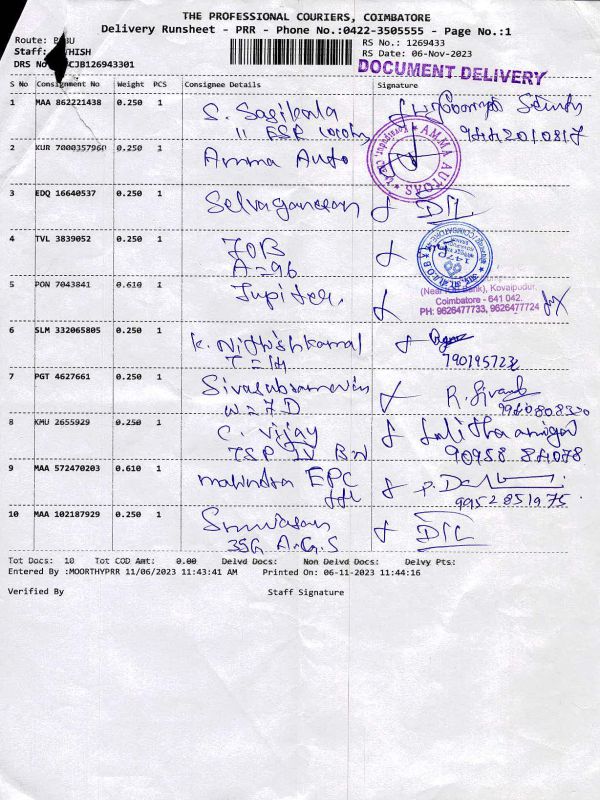 THE PROFESSIONAL COURIERS, COIMBATORE
Delivery Runsheet - PRR - Phone No.:0422-3505555 - Page No.:1
Route: BU
RS No.: 1269433
Staff: HISH
RS Date: 06-Nov-2023
DRS No CJB126943301
DOCUMENT DELIVERY
S No Consignment No Weight PCS Consignee Details Signature
1 MAA 862221438 0.250 1 S. Sasikala
11 ESR
2 KUR 7000357960 0.250 1 Amma Auto
AMMA AUTOS
3 EDQ 16640537 0.250 1 Selvaganesan
4 TVL 3839052 0.250 1 IOB
A=96
COIMBATORE
5 PON 7043841 0.610 1 Jupiter.
(Near IOB Bank), Kovaipudur,
Coimbatore - 641 042.
PH: 9626477733, 9626477724
6 SLM 332065805 0.250 1 K. Nithishkamal
7 PGT 4627661 0.250 1 Sivasubramanian R. Siva
W=7D
8 KMU 2655929 0.250 1 C. Vijay Lalitha
TSP IV BN 90958 84078
9 MAA 572470203 0.610 1 Mahindra EPC
99528 51975
10 MAA 102187929 0.250 1 Srinivasan
35G A.G.S
Tot Docs: 10 Tot COD Amt: 0.00 Delvd Docs: Non Delvd Docs: Delvy Pts:
Entered By :MOORTHYPRR 11/06/2023 11:43:41 AM Printed On: 06-11-2023 11:44:16
Verified By Staff Signature